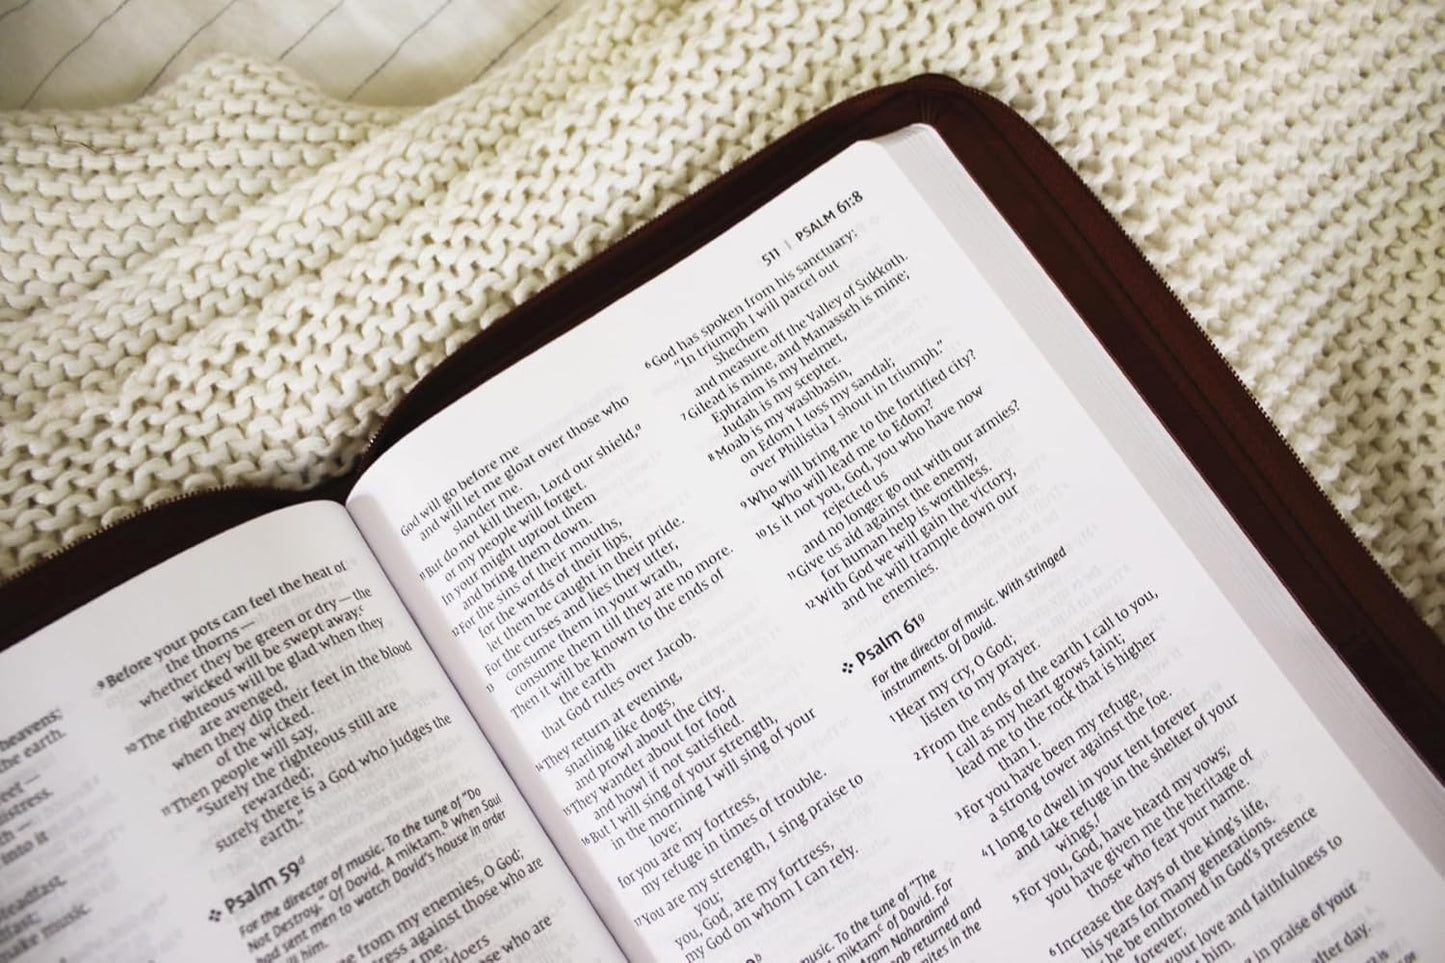 heavens;
the earth.
feet —
distress.
th —
into it
steadfast,
music.
9 Before your pots can feel the heat of
the thorns —
whether they be green or dry — the
wicked will be swept away.c
10 The righteous will be glad when they
are avenged,
when they dip their feet in the blood
of the wicked.
11 Then people will say,
“Surely the righteous still are
rewarded;
surely there is a God who judges the
earth.”
Psalm 59d
For the director of music. To the tune of “Do
Not Destroy.” Of David. A miktam.b When Saul
had sent men to watch David's house in order
him.
me from my enemies, O God;
against those who are
me.
who are
511 | PSALM 61:8
God will go before me
and will let me gloat over those who
slander me.
11 But do not kill them, Lord our shield,a
or my people will forget.
In your might uproot them
and bring them down.
12 For the sins of their mouths,
for the words of their lips,
let them be caught in their pride.
For the curses and lies they utter,
13 consume them in your wrath,
consume them till they are no more.
Then it will be known to the ends of
the earth
that God rules over Jacob.
14 They return at evening,
snarling like dogs,
and prowl about the city.
15 They wander about for food
and howl if not satisfied.
16 But I will sing of your strength,
in the morning I will sing of your
love;
for you are my fortress,
my refuge in times of trouble.
17 You are my strength, I sing praise to
you;
you, God, are my fortress,
my God on whom I can rely.
music. To the tune of “The
miktamc of David. For
Aram Naharaimd
returned and
in the
6 God has spoken from his sanctuary:
“In triumph I will parcel out
Shechem
and measure off the Valley of Sukkoth.
7 Gilead is mine, and Manasseh is mine;
Ephraim is my helmet,
Judah is my scepter.
8 Moab is my washbasin,
on Edom I toss my sandal;
over Philistia I shout in triumph.”
9 Who will bring me to the fortified city?
Who will lead me to Edom?
10 Is it not you, God, you who have now
rejected us
and no longer go out with our armies?
11 Give us aid against the enemy,
for human help is worthless.
12 With God we will gain the victory,
and he will trample down our
enemies.
Psalm 61g
For the director of music. With stringed
instruments. Of David.
1 Hear my cry, O God;
listen to my prayer.
2 From the ends of the earth I call to you,
I call as my heart grows faint;
lead me to the rock that is higher
than I.
3 For you have been my refuge,
a strong tower against the foe.
4 I long to dwell in your tent forever
and take refuge in the shelter of your
wings.f
5 For you, God, have heard my vows;
you have given me the heritage of
those who fear your name.
6 Increase the days of the king's life,
his years for many generations.
he be enthroned in God's presence
forever;
your love and faithfulness to
him.
in praise of your
after day.